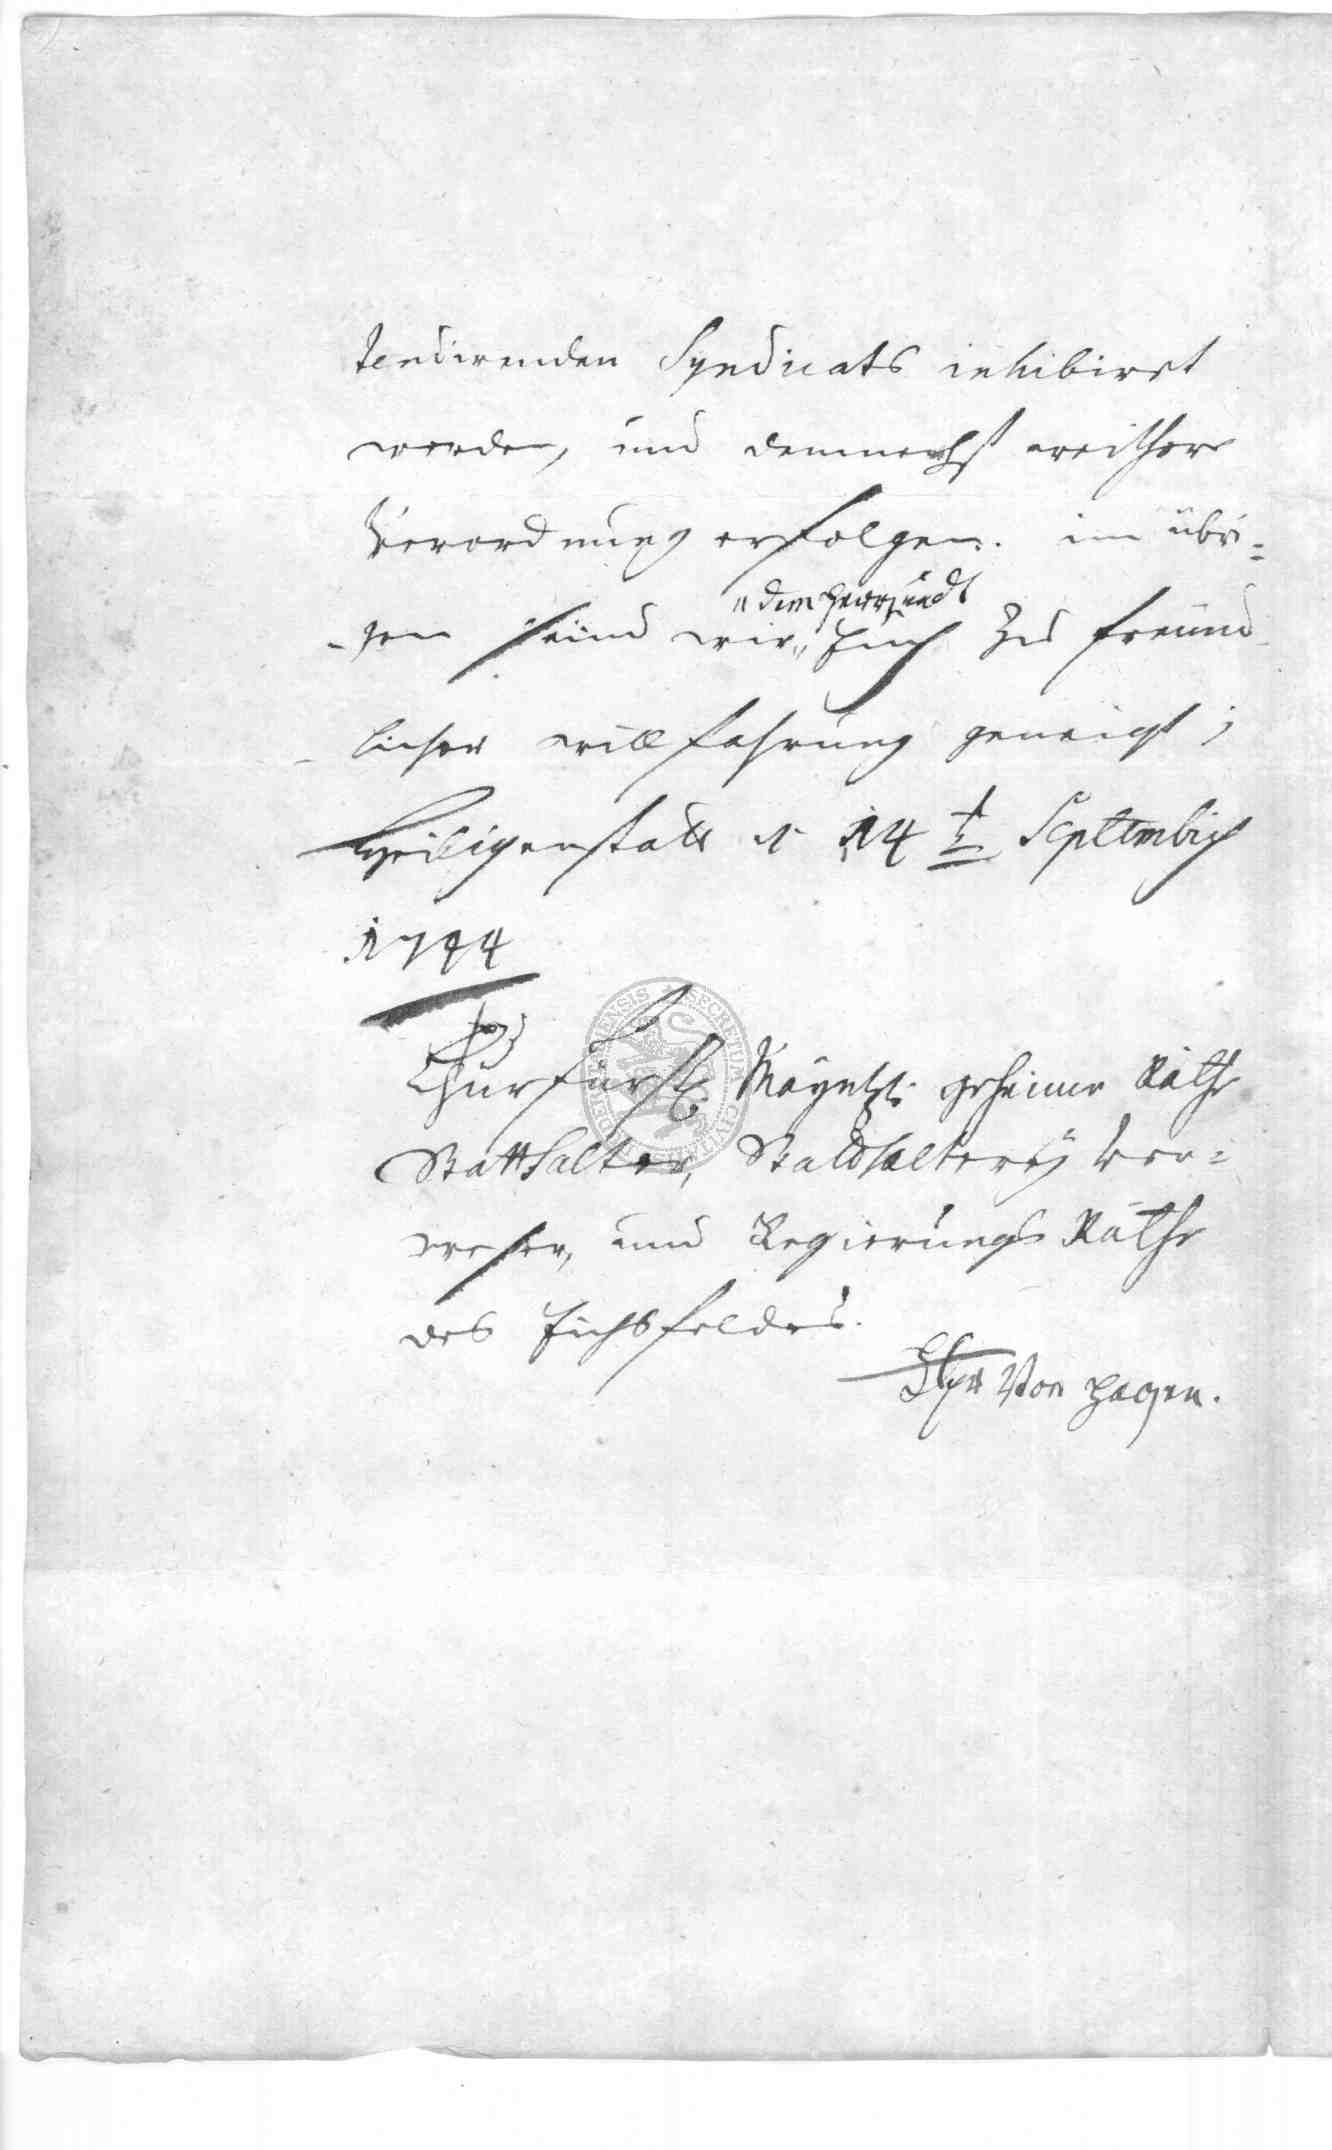 tendirenden Syndicats inhibiret
werden, und demnechst weithere
Verordnung erfolgen. im übri=
"dem Herrn und
-gen seind wir" Euch zu freund
licher willfahrung geneigt;
Heiligenstatt d 14t Septembris
1744
Churfürstl. Mayntzl. geheime Räthe
Statthalter, Stadthalterey Ver=
weser, und Regierungs Räthe
des Eichsfeldes.
von Hagen.
SECRETUM CIVIUM